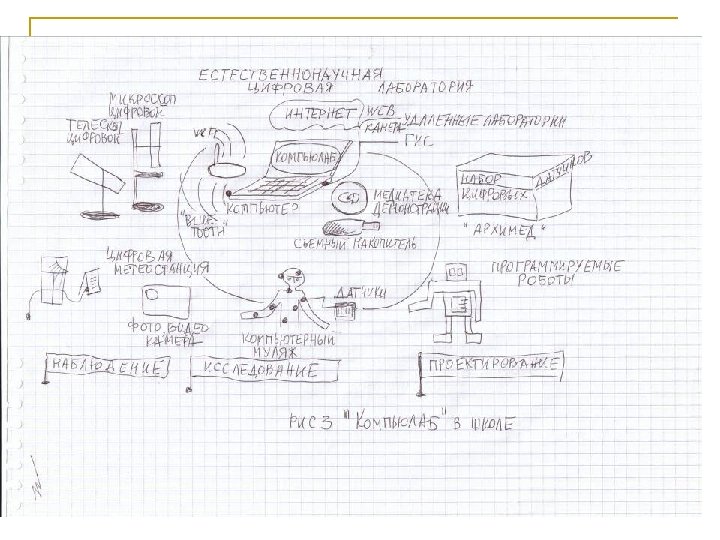 ЕСТЕСТВЕННОНАУЧНАЯ
ЦИФРОВАЯ ЛАБОРАТОРИЯ
МИКРОСКОП
ЦИФРОВОЙ
ТЕЛЕСКОП
ЦИФРОВОЙ
ИНТЕРНЕТ
WEB
КАМЕРА
УДАЛЕННЫЕ ЛАБОРАТОРИИ
ГИС
КОМПЬЮЛАБ
КОМПЬЮТЕР
МЕДИАТЕКА
ДЕМОНСТРАЦИИ
СЪЕМНЫЙ НАКОПИТЕЛЬ
НАБОР
ЦИФРОВЫХ
ДАТЧИКОВ
"АРХИМЕД"
ЦИФРОВАЯ
МЕТЕОСТАНЦИЯ
ФОТО, ВИДЕО
КАМЕРА
ДАТЧИКИ
КОМПЬЮТЕРНЫЙ
МУЛЯЖ
ПРОГРАММИРУЕМЫЕ
РОБОТЫ
НАБЛЮДЕНИЕ
ИССЛЕДОВАНИЕ
ПРОЕКТИРОВАНИЕ
РИС 3 "КОМПЬЮЛАБ" В ШКОЛЕ